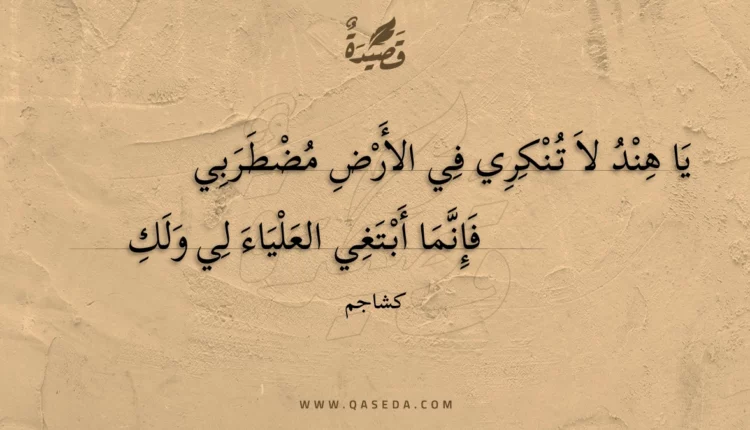 قَصِيدَةٌ
يَا هِنْدُ لاَ تُنْكِرِي فِي الأَرْضِ مُضْطَرَبِي
فَإِنَّمَا أَبْتَغِي العَلْيَاءَ لِي وَلَكِ
كشاجم
WWW.QASEDA.COM